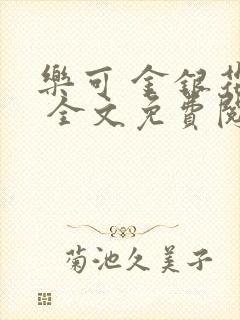 樂可 金銀花
全文免費閱
菊池久美子